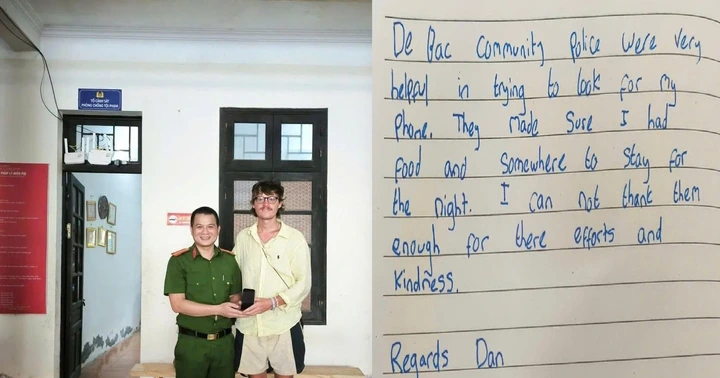 TỔ CẢNH SÁT
PHÒNG CHỐNG TỘI PHẠM
De Bac community police were very
helpful in trying to look for my
phone. They made sure I had
food and somewhere to stay for
the night. I can not thank them
enough for there efforts and
kindness.
Regards Dan